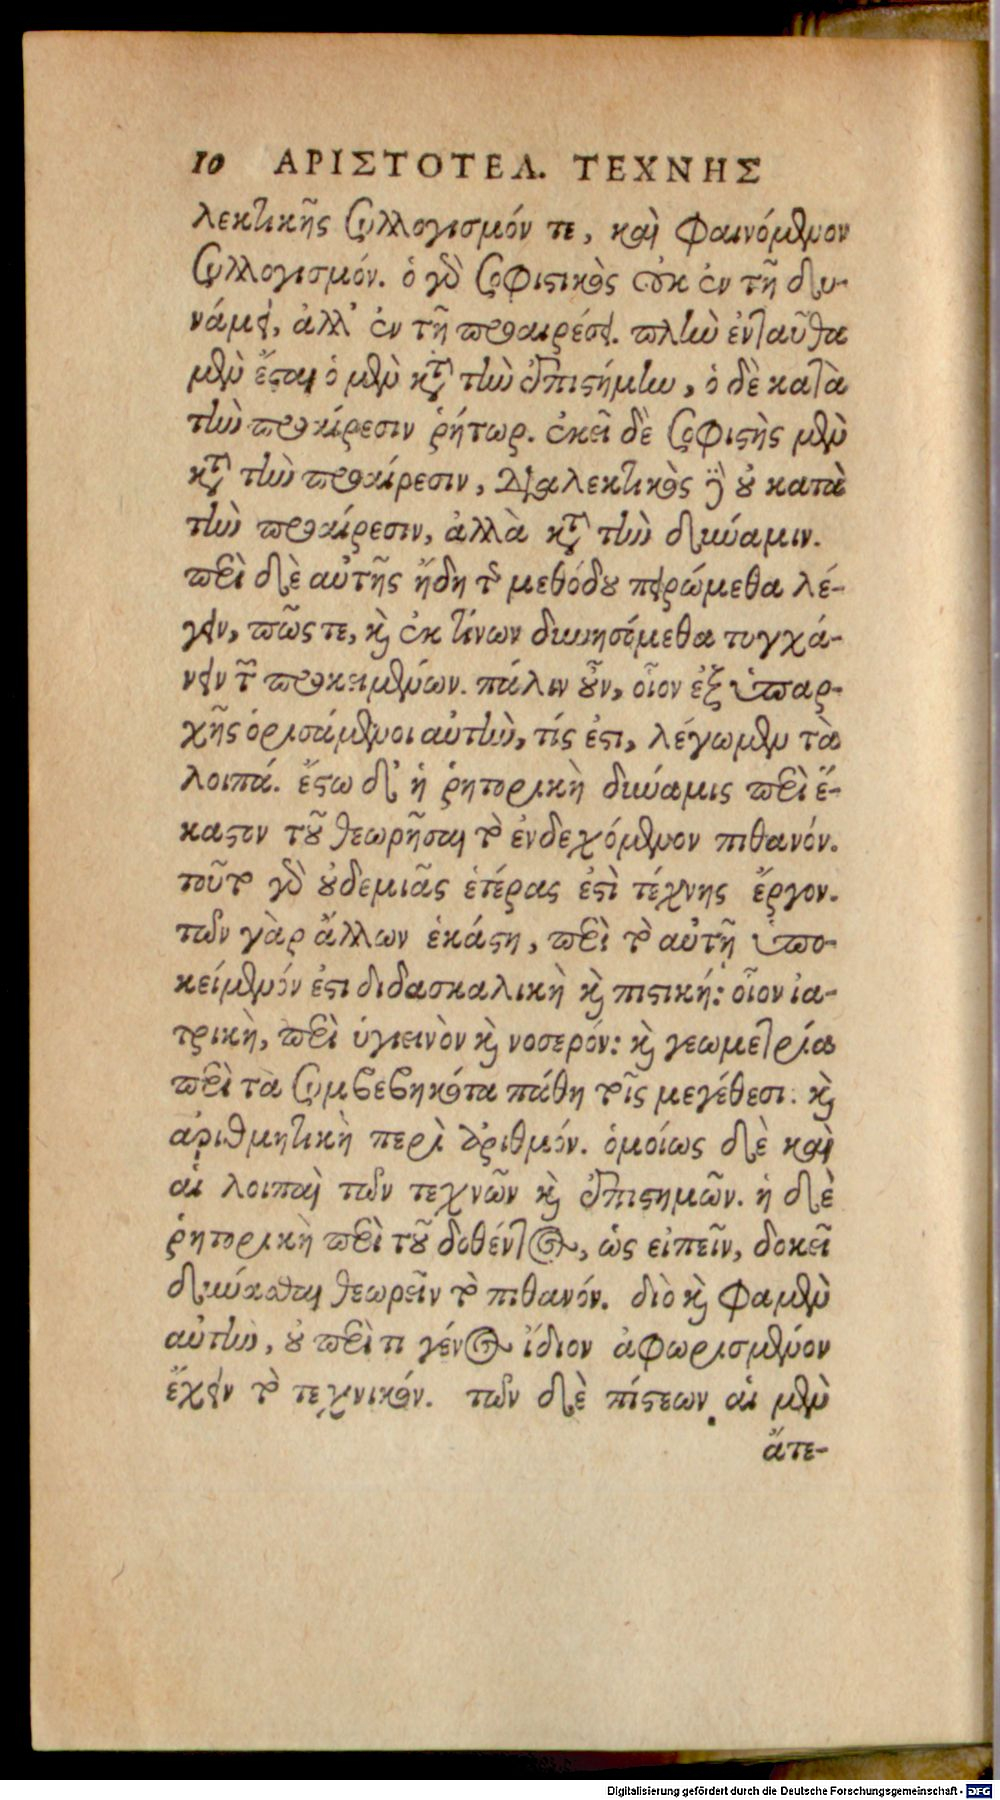 10 ΑΡΙΣΤΟΤΕΛ. ΤΕΧΝΗΣ
λεκτικῆς συλλογισμόν τε, καὶ φαινόμενον
συλλογισμόν. ὁ γὰρ σοφιστικὸς οὐκ ἐν τῇ δυ-
νάμει, ἀλλ' ἐν τῇ προαιρέσει. πλὴν ἐνταῦθα
μὲν ἔσται ὁ μὲν κατὰ τὴν ἐπιστήμην, ὁ δὲ κατὰ
τὴν προαίρεσιν ῥήτωρ. ἐκεῖ δὲ σοφιστὴς μὲν
κατὰ τὴν προαίρεσιν, διαλεκτικὸς δὲ οὐ κατὰ
τὴν προαίρεσιν, ἀλλὰ κατὰ τὴν δύναμιν.
περὶ δὲ αὐτῆς ἤδη τῆς μεθόδου πειρώμεθα λέ-
γειν, πῶς τε, καὶ ἐκ τίνων δυνησόμεθα τυγχά-
νειν τῶν προκειμένων. πάλιν οὖν, οἷον ἐξ ὑπαρ-
χῆς ὁρισάμενοι αὐτὴν, τίς ἐστι, λέγωμεν τὰ
λοιπά. ἔστω δ' ἡ ῥητορικὴ δύναμις περὶ ἕ-
καστον τοῦ θεωρῆσαι τὸ ἐνδεχόμενον πιθανόν.
τοῦτο γὰρ οὐδεμιᾶς ἑτέρας ἐστὶ τέχνης ἔργον.
τῶν γὰρ ἄλλων ἑκάστη, περὶ τὸ αὐτῇ ὑπο-
κείμενόν ἐστι διδασκαλικὴ καὶ πιστική: οἷον ἰα-
τρικὴ, περὶ ὑγιεινὸν καὶ νοσερόν: καὶ γεωμετρία
περὶ τὰ συμβεβηκότα πάθη τοῖς μεγέθεσι: καὶ
ἀριθμητικὴ περὶ ἀριθμόν. ὁμοίως δὲ καὶ
αἱ λοιπαὶ τῶν τεχνῶν καὶ ἐπιστημῶν. ἡ δὲ
ῥητορικὴ περὶ τοῦ δοθέντος, ὡς εἰπεῖν, δοκεῖ
δύνασθαι θεωρεῖν τὸ πιθανόν. διὸ καὶ φαμὲν
αὐτὴν, οὐ περὶ τι γένος ἴδιον ἀφωρισμένον
ἔχειν τὸ τεχνικόν. τῶν δὲ πίστεων αἱ μὲν
ἄτε-
Digitalisierung gefördert durch die Deutsche Forschungsgemeinschaft - DFG